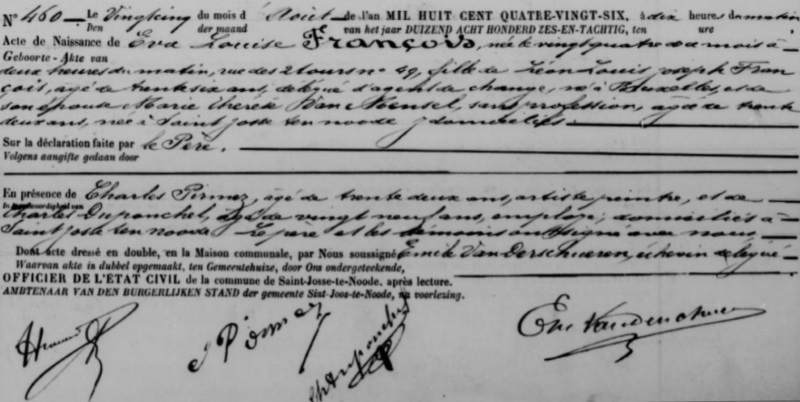 N° 460 Le Vingtcinq du mois d'Août de l'an MIL HUIT CENT QUATRE-VINGT-SIX, à dix heures du matin
Den der maand van het jaar DUIZEND ACHT HONDERD ZES-EN-TACHTIG, ten ure
Acte de Naissance de Eva Louise François, née le vingt quatre de ce mois à
Geboorte-Akte van
deux heures du matin, rue des 2 tours n° 49, fille de Léon Louis Joseph Fran
çois, âgé de trente six ans, délégué d'agent de change, né à Bruxelles, et de
son épouse Marie Thérèse Van Mensel, sans profession, âgée de trente
deux ans, née à Saint Josse ten noode, y domiciliés
Sur la déclaration faite par le Père.
Volgens aangifte gedaan door
En présence de Charles Pirmez, âgé de trente deux ans, artiste peintre, et de
In tegenwoordigheid van
Charles Duponchel, âgé de vingt neuf ans, employé; domiciliés à
Saint Josse ten noode. Le père et les témoins ont signé avec nous
Dont acte dressé en double, en la Maison communale, par Nous soussigné Emile Van Derschueren, échevin délégué
Waarvan akte in dubbel opgemaakt, ten Gemeentehuize, door Ons ondergeteekende,
OFFICIER DE L'ÉTAT CIVIL de la commune de Saint-Josse-te-Noode, après lecture.
AMBTENAAR VAN DEN BURGERLIJKEN STAND der gemeente Sint-Joos-te-Noode, na voorlezing.
Pirmez
Ch Duponchel